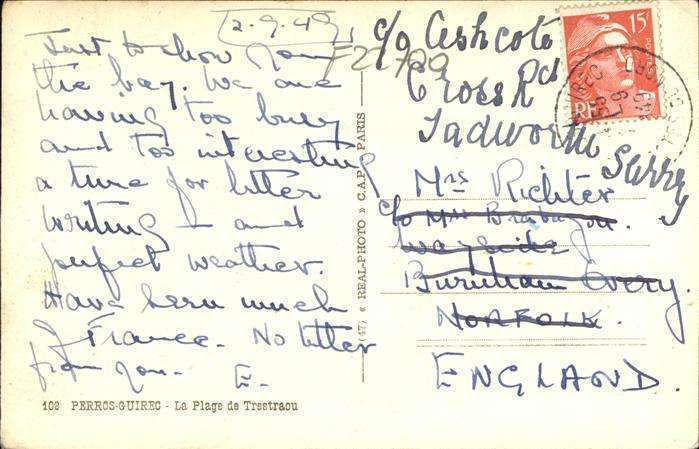 2.9.49
Just to show you
the bay. We are
having too busy
and too interesting
a time for letter
writing – and
perfect weather.
Have seen much
of France. No letter
from you. E.
102 PERROS-GUIREC - La Plage de Trestraou
(47) « REAL-PHOTO » C.A.P. PARIS
c/o Ashcote
Cross Rd
Tadworth
Surrey
Mrs Richter
c/o Mrs
Wayside
Burnham Overy.
NORFOLK.
ENGLAND.
15F
POSTES
RF